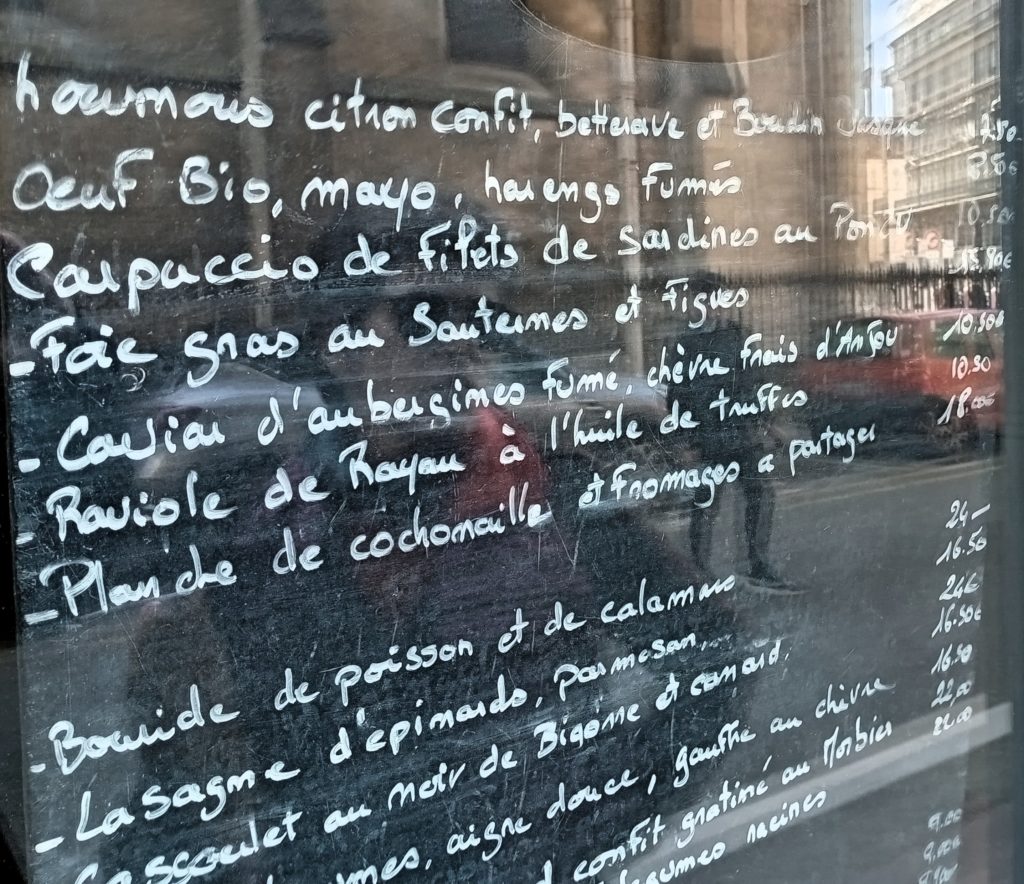 houmous citron confit, betterave et Boudin Basque 7.50
Oeuf Bio, mayo, harengs fumés 8.50€
Carpaccio de Filets de sardines au Ponzu 10.50
- Foie gras au Sauternes et Figues 15.90€
- Caviar d'aubergines fumé, chèvre frais d'Anjou 10.50€
- Raviole de Royan à l'huile de truffes 10.50
- Planche de cochonaille et fromages a partager 18.00€
- Bouride de poisson et de calamars 24-
- Lasagne d'épinards, parmesan 16.50
Cassoulet au noir de Bigorre et canard. 24€
aigre douce, gauffre au chèvre 16.50€
confit gratiné au Morbier 16.50
légumes racines 22,00
22.00
9.00
9.00€
9.00